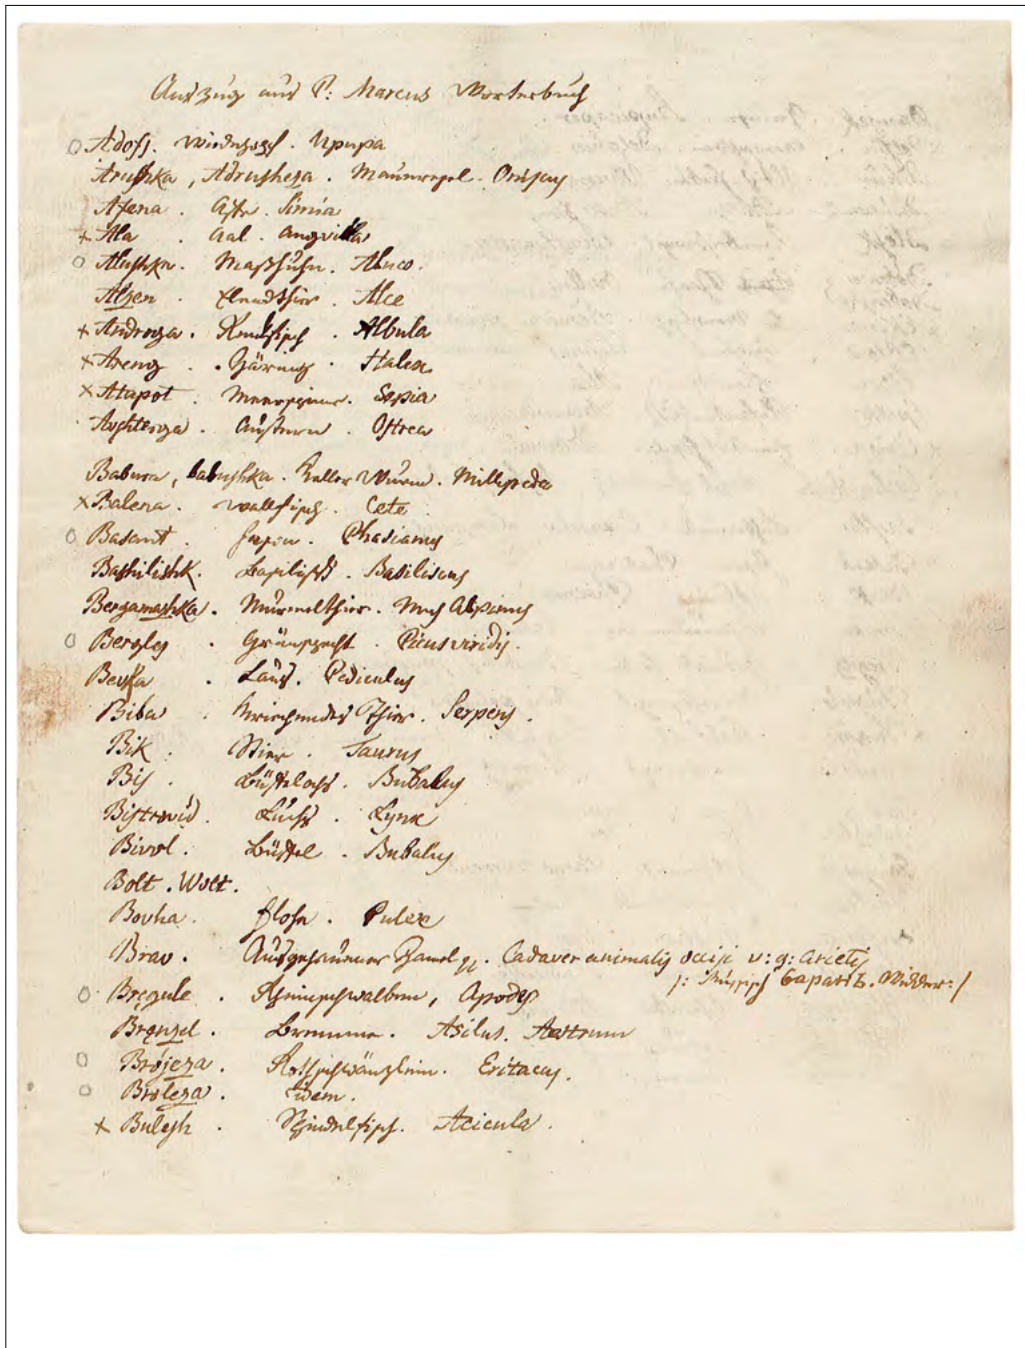 Auszug aus P: Marcus Wörterbuch
Adofs. Wiedehopf. Upupa
Arushka, Adrusheza. Maurwespel. Oniscus
Afena. Affe. Simia
+ Ala. Aal. Anguilla
o Alushka. Maßhuhn. Aluco.
Alzen. Elendthier. Alce
+ Androga. Albula
+ Areng. Häring. Halex
x Atapot. Meerspinne. Sepia
Aushterza. Austern. Ostrea
Babura, babushka. Keller Wurm. Millepeda
x Balena. Wallfisch. Cete
o Basant. Fasan. Phasianus
Bashilishk. Basilisk. Basiliscus
Bergamashka. Murmelthier. Mus Alpinus
o Bergles. Grünspecht. Picus viridis.
Beusha. Laus. Pediculus
Biba. kriechendes Thier. Serpens.
Bik. Stier. Taurus
Bis. Büffelochs. Bubalus
Bistrovid. Luchs. Lynx
Bivol. Büffel. Bubalus
Bolt. Wolt.
Bovha. Flohe. Pulex
Brav. Ausgehauener Hamel. Cadaver animalis occisi v: g: arietis
/: Russisch Баранъ. Widder: /
o Bregule. Rheinschwalben, Apodes
Brenzel. Bremme. Asilus. Aestrum
o Brojeza. Rothschwänzlein. Eritacus.
o Broleza. Idem.
x Bulesh. Spindelfisch. Acicula.